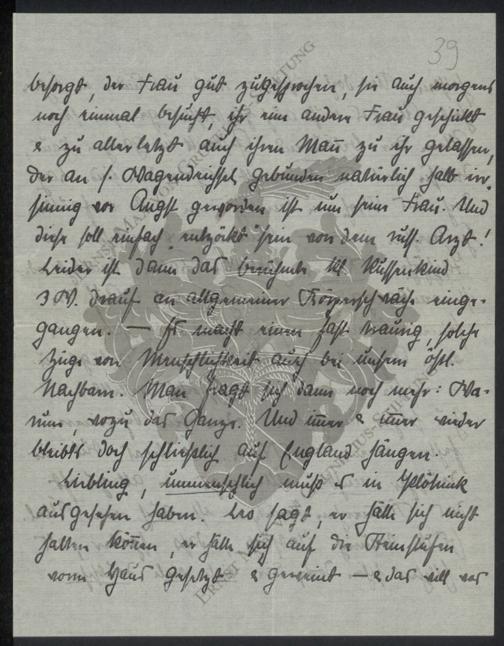 39
besorgt, der Frau gut zugesprochen, sie auch morgens
noch einmal besucht, ihr eine andere Frau geschickt
& zu allerletzt auch ihren Mann zu ihr gelassen,
der an s. Wagendeichsel gebunden natürlich halb irr-
sinnig vor Angst geworden ist um seine Frau. Und
diese soll einfach entzückt sein von dem russ. Arzt!
Leider ist dann das berühmte Russenkind
3 W. drauf an allgemeiner Körperschwäche einge-
gangen. — Es macht einen fast traurig, solche
Züge von Menschlichkeit auch bei unsern östl.
Nachbarn. Man fragt sich dann noch mehr: Wa-
rum, wozu das Ganze. Und immer & immer wieder
bleibts doch schließlich auf England hängen.
Liebling, unmenschlich muß es in
ausgesehen haben. Leo sagt, er hätte sich nicht
halten können, er hätte sich auf die Steinstufen
vorm Haus gesetzt & geweint — & das will was